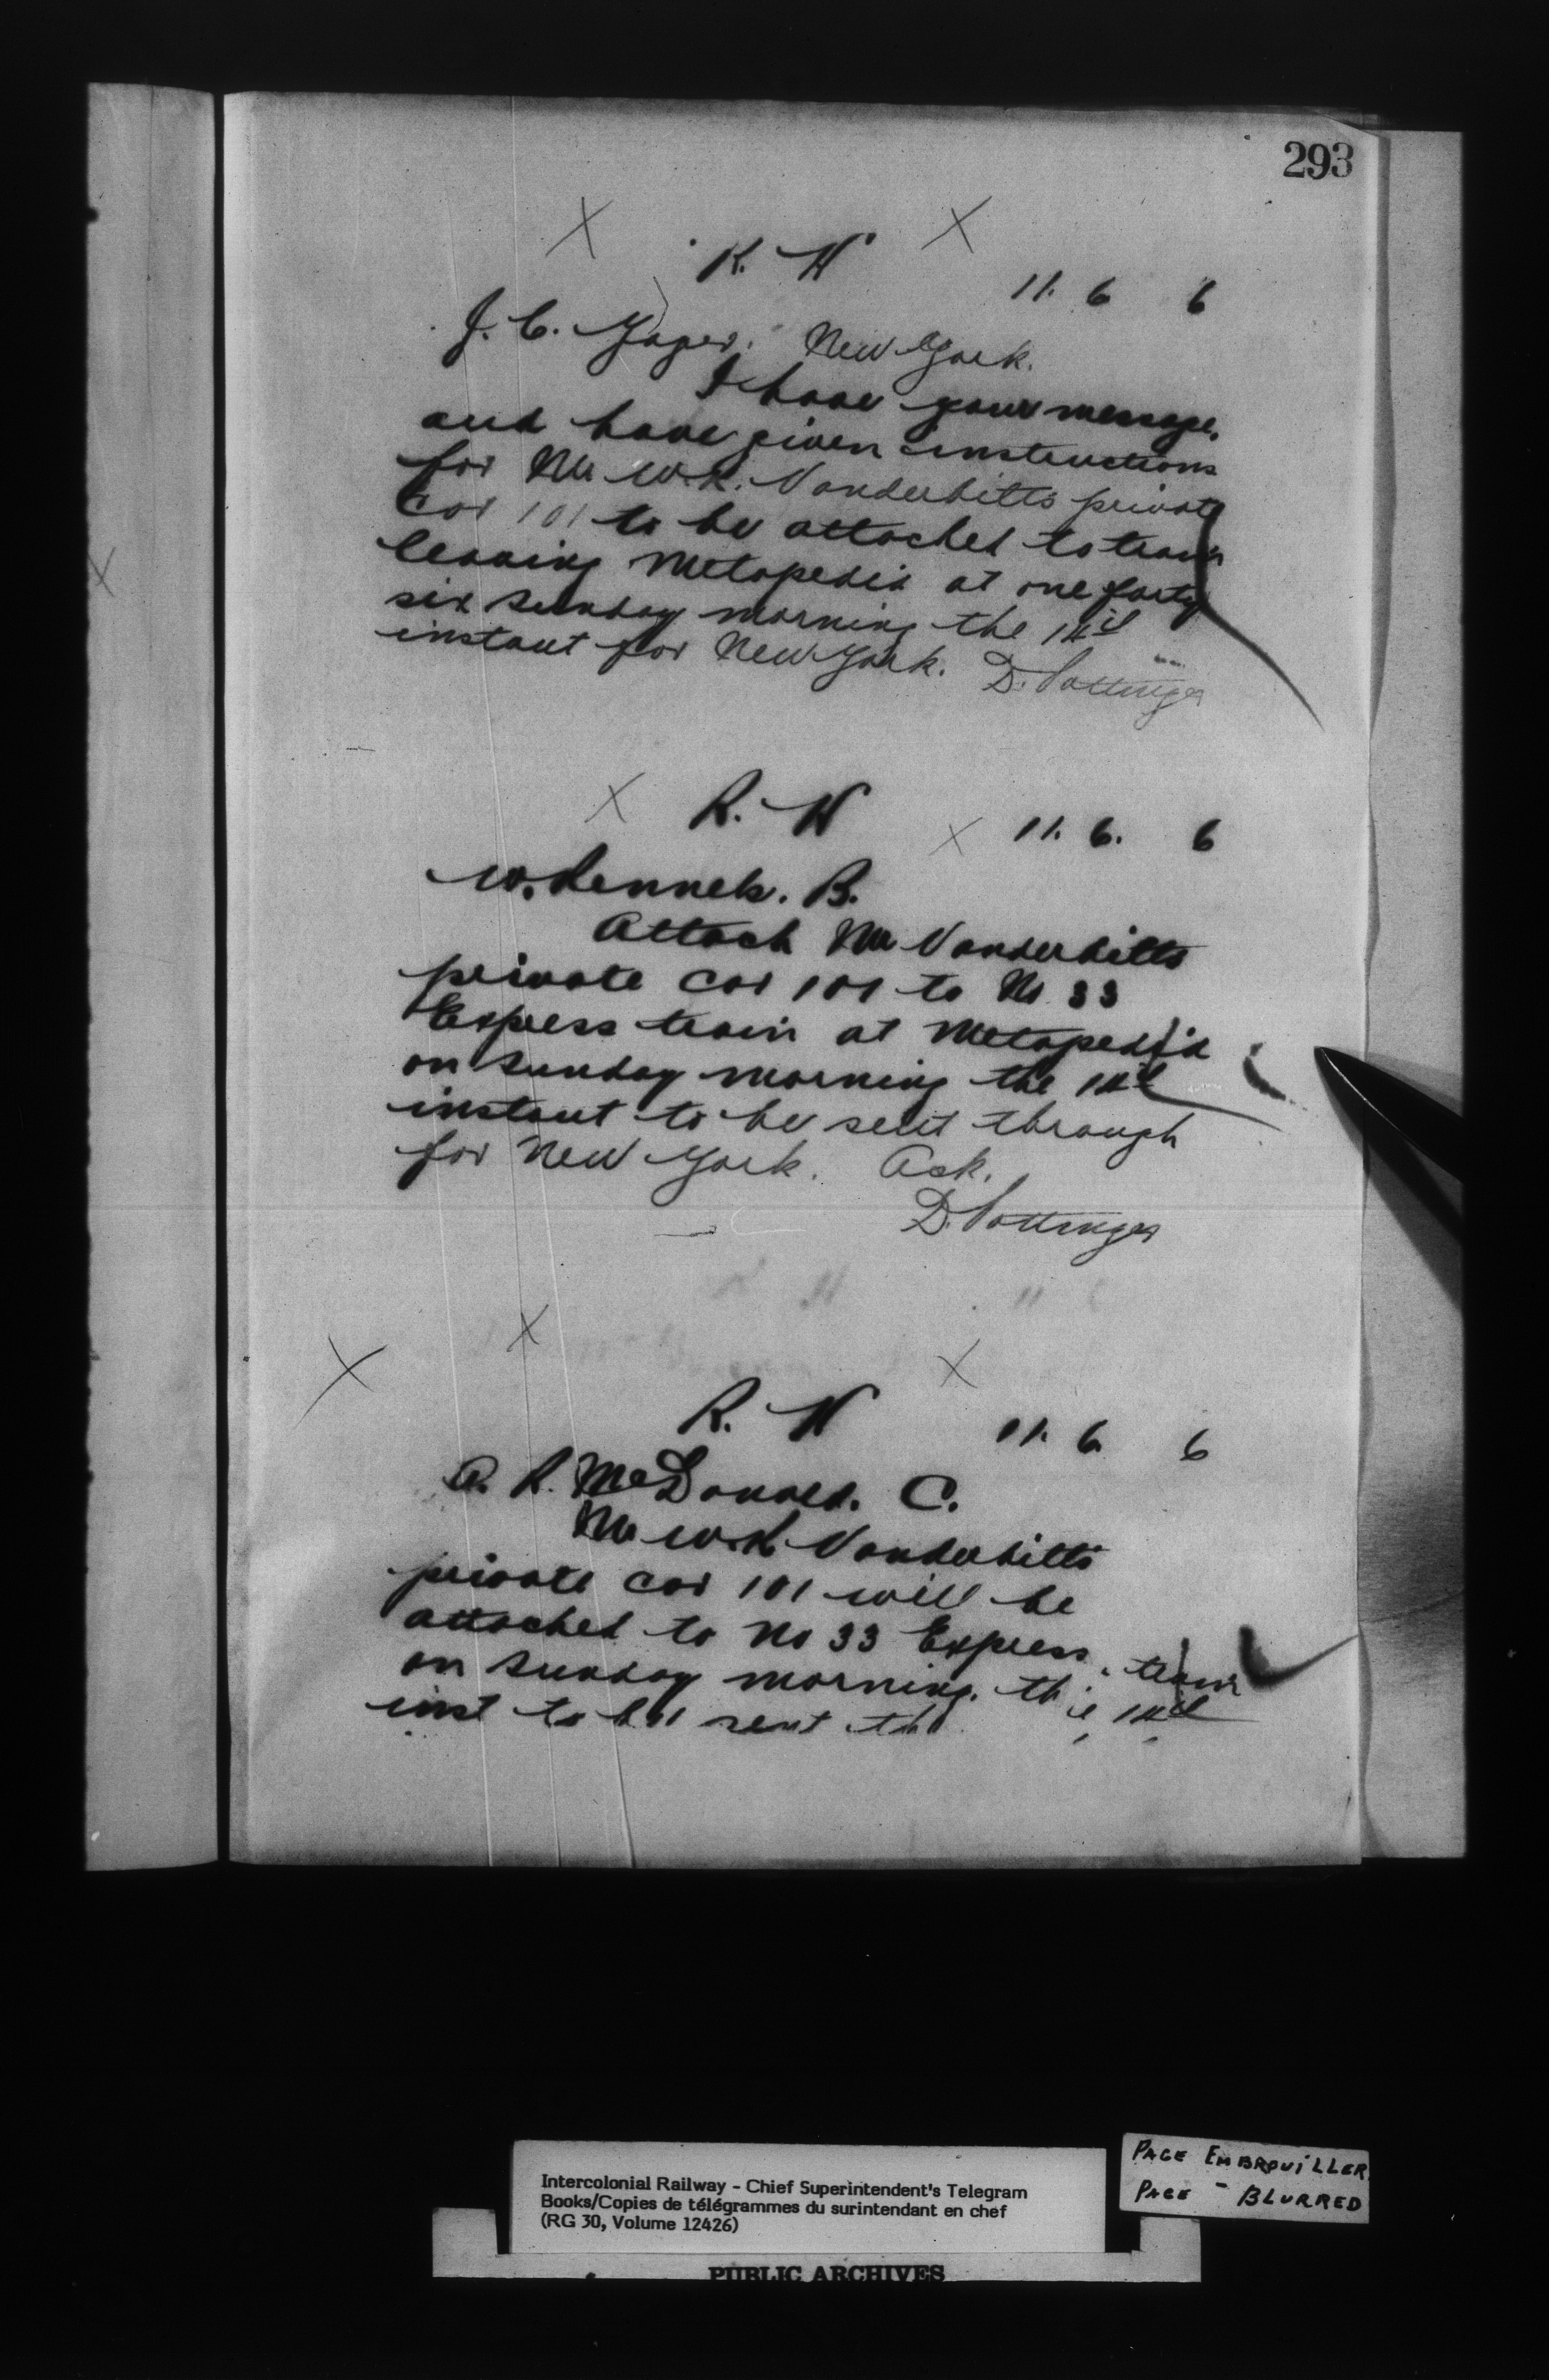 293
R. W
11. 6 6
J. C. Yager. New York.
I have your message,
and have given instructions
for Mr W. K. Vanderbilts private
car 101 to be attached to train
leaving Metapedia at one forty
six Sunday morning the 14th
instant for New York. D. Pottinger
R. W
11. 6. 6
W. Rennels. B.
Attach Mr Vanderbilts
private car 101 to No 33
Express train at Metapedia
on Sunday morning the 14th
instant to be sent through
for New York. Ack.
D. Pottinger
R. W
11. 6. 6
A. R. McDonald. C.
Mr W. K Vanderbilts
private car 101 will be
attached to No 33 Express train
on Sunday morning. the 14th
inst to be sent
PAGE EMBROUILLER
PAGE - BLURRED
Intercolonial Railway - Chief Superintendent's Telegram
Books/Copies de télégrammes du surintendant en chef
(RG 30, Volume 12426)
PUBLIC ARCHIVES